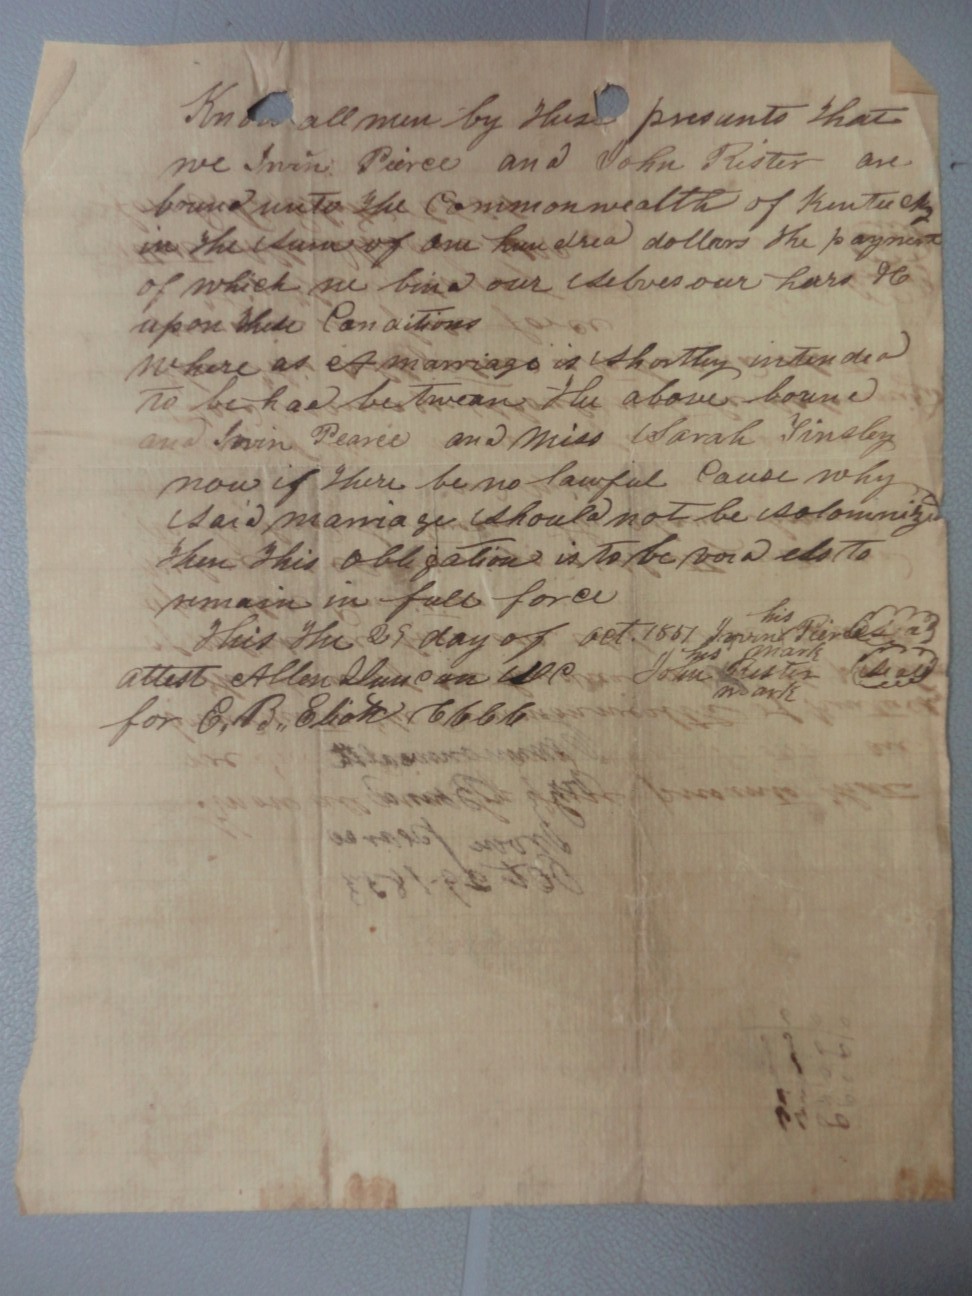 Know all men by these presents that
we Irvin Pierce and John Rister are
bound unto the Commonwealth of Kentucky
in the sum of one hundred dollars the payment
of which we bind our selves our hars &c
upon these Conditions
where as A marriage is shortley intended
to be had betwean the above bound
and Irvin Pearce and Miss Sarah Tinsley
now if there be no lawful Cause why
said marriage should not be solomnized
then this obligation is to be void els to
remain in full force
This the 29 day of oct. 1851 Irvin his mark Pierce seal
attest Allen Duncan DC John his mark Rister seal
for E. B. Eliott